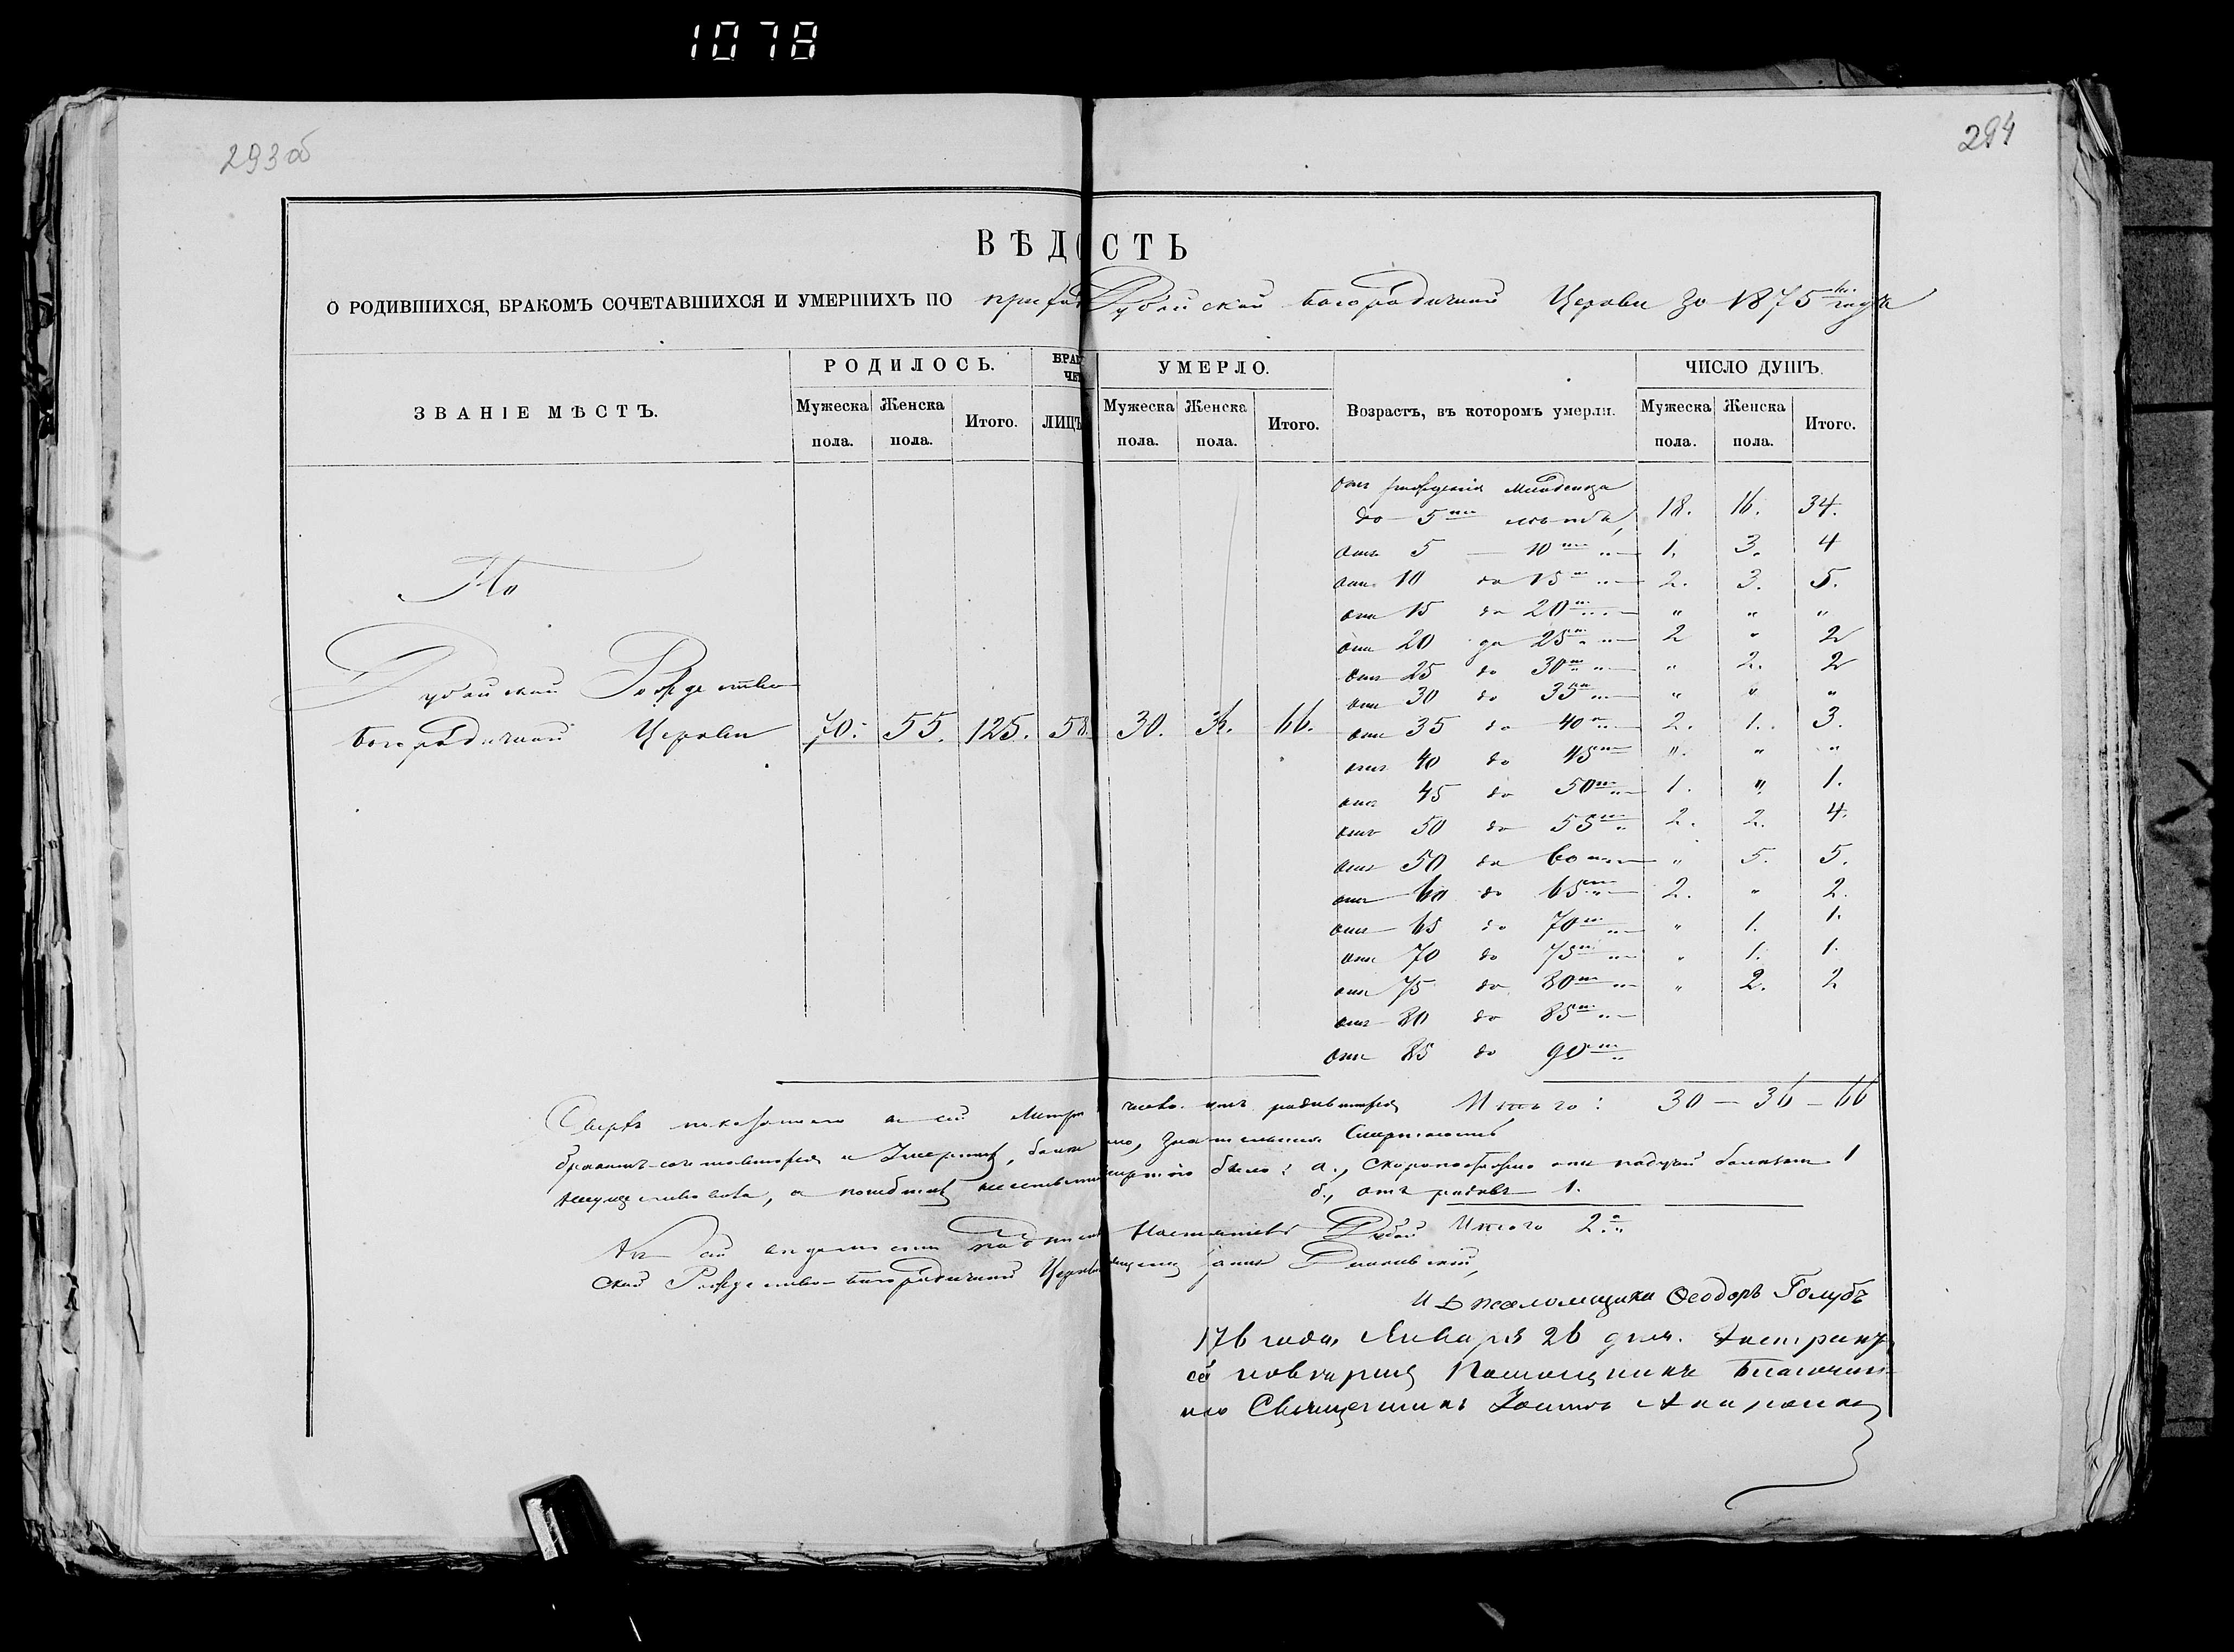 1078
293об
294
ВѢДОСТЬ
О РОДИВШИХСЯ, БРАКОМЪ СОЧЕТАВШИХСЯ И УМЕРШИХЪ ПО Дубойской Богородичной Церкви за 1875 года
ЗВАНІЕ МѢСТЪ.
РОДИЛОСЬ.
Мужеска пола.
Женска пола.
Итого.
ЛИЦЪ
УМЕРЛО.
Мужеска пола.
Женска пола.
Итого.
Возрастъ, въ которомъ умерли.
ЧИСЛО ДУШЪ.
Мужеска пола.
Женска пола.
Итого.
По
Дубойской Рождество
Богородичной Церкви 70. 55. 125. 58. 30. 36. 66.
отъ рожденія младенца
до 5 лѣтъ, 18. 16. 34.
отъ 5 — 10 „ — 1. 3. 4
отъ 10 до 15 „ — 2. 3. 5.
отъ 15 до 20 „ — „ „ „
отъ 20 до 25 „ — 2 „ 2
отъ 25 до 30 „ — „ 2. 2
отъ 30 до 35 „ — „ „ „
отъ 35 до 40 „ — 2. 1. 3.
отъ 40 до 45 „ „ „
отъ 45 до 50 „ — 1. „ 1.
отъ 50 до 55 „ 2. 2. 4.
отъ 50 до 60 „ — „ 5. 5.
отъ 60 до 65 „ — 2. „ 2.
отъ 65 до 70 „ — „ 1. 1.
отъ 70 до 75 „ — „ 1. 1.
отъ 75 до 80 „ — „ 2. 2
отъ 80 до 85 „ —
отъ 85 до 90 „
Итого: 30 — 36 — 66
Сверхъ показаннаго въ сей родившихся
и Умершихъ, Смертность
было: а., скоропостижно отъ падучей болѣзни 1
б., отъ родовъ 1.
Итого 2
Къ сей вѣдомости Настоятель Дубой
ской Рождество-Богородичной Церкви
И. Д. Псаломщика Ѳеодоръ Голубъ
176 года Января 26 дня.
повѣрилъ Помощникъ Благочин
наго Священникъ